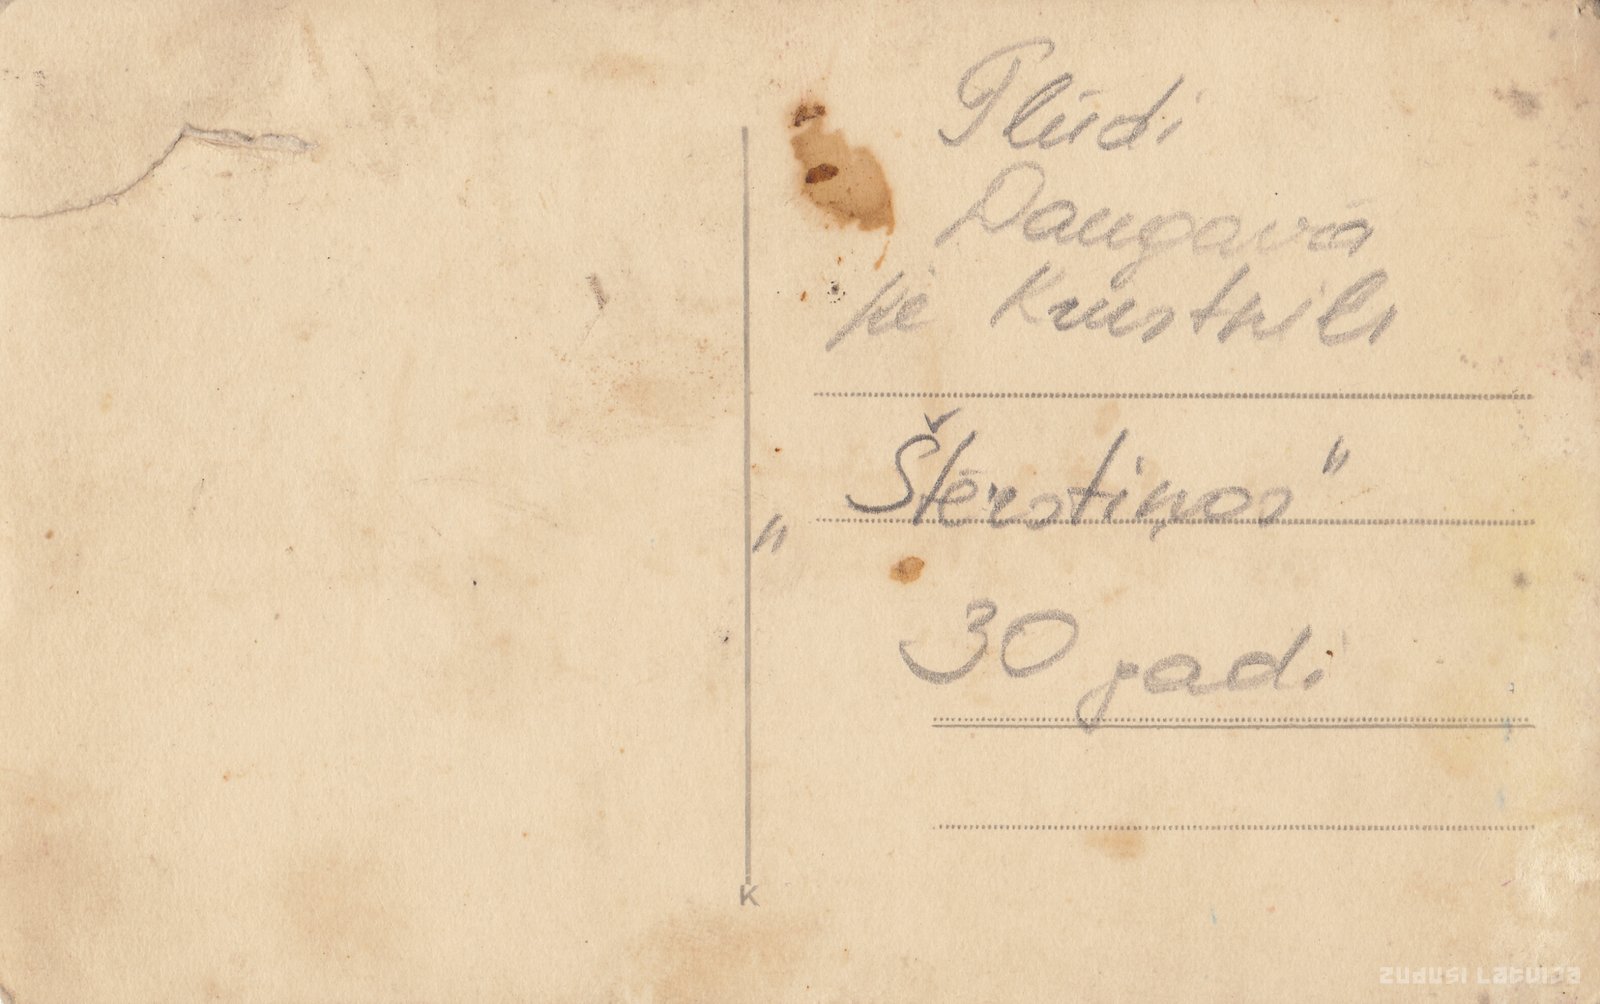 Plūdi
Daugavā
pie Krustpils
„Štērstiņos"
30 gadi
K
zudusi Latvija